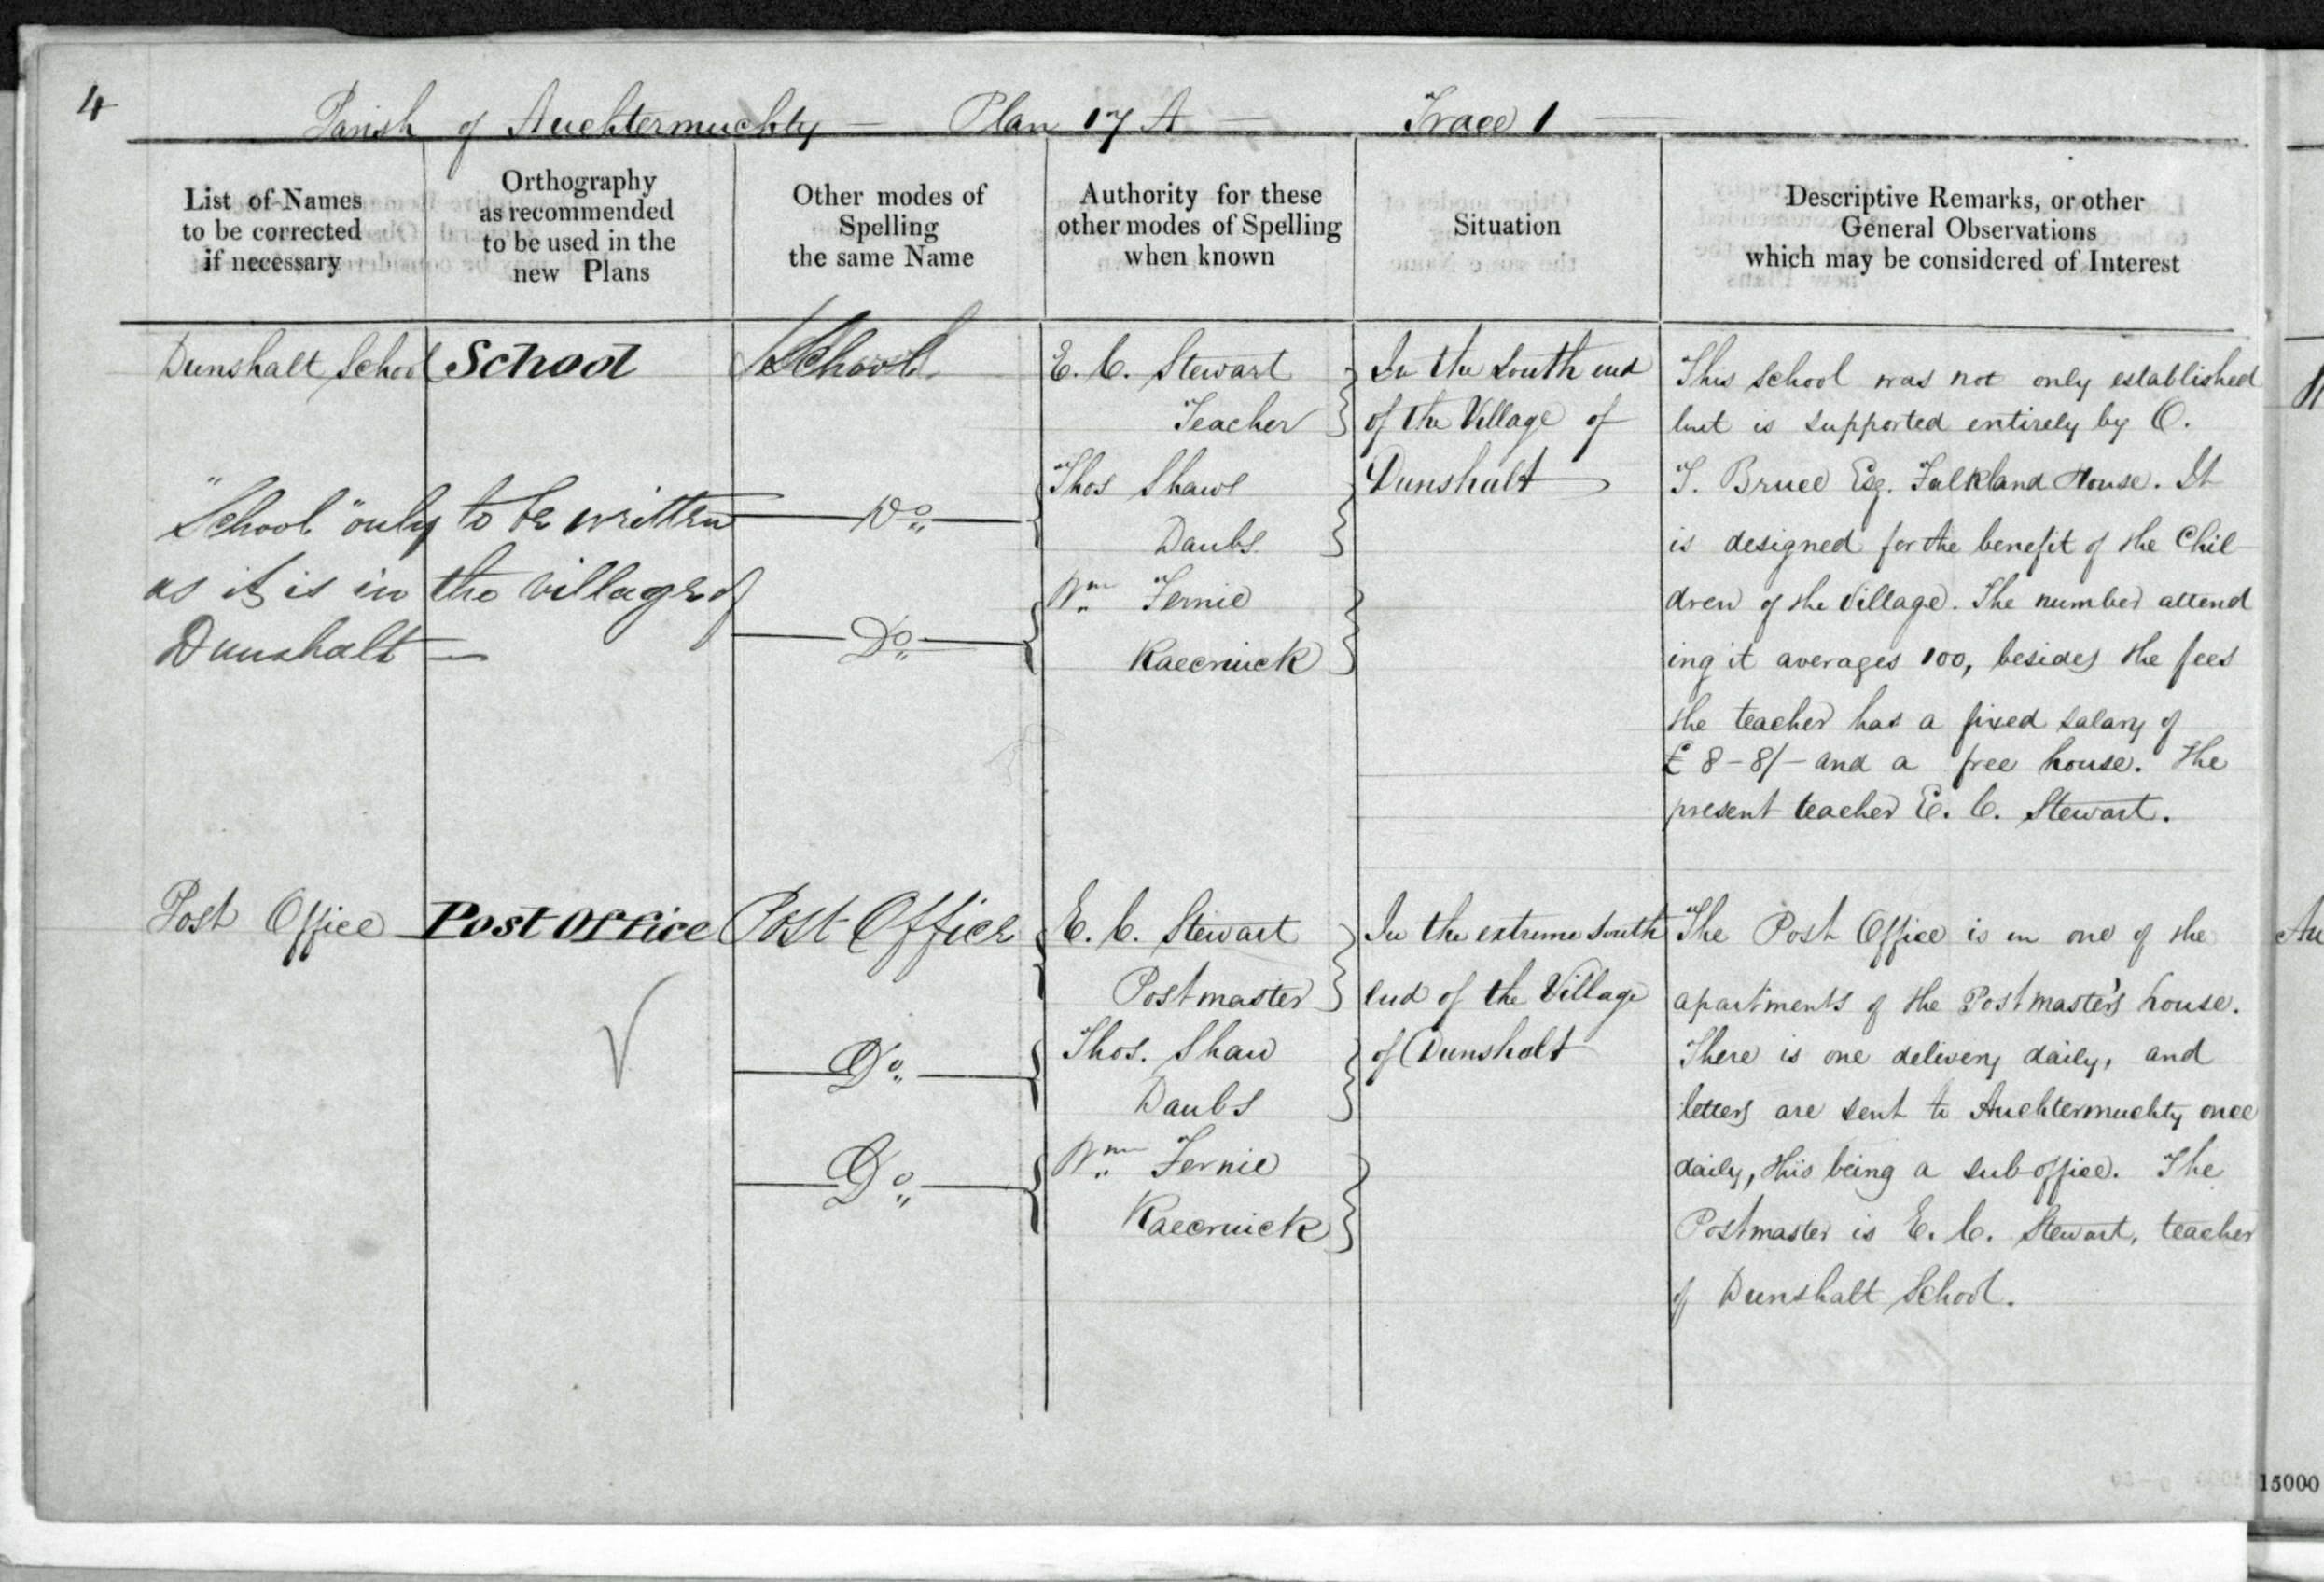 4
Parish of Auchtermuchty — Plan 17 A — Trace 1 —
List of Names
to be corrected
if necessary
Orthography
as recommended
to be used in the
new Plans
Other modes of
Spelling
the same Name
Authority for these
other modes of Spelling
when known
Situation
Descriptive Remarks, or other
General Observations
which may be considered of Interest
Dunshalt School
School
School
E. C. Stewart
Teacher
Thos Shaw
Daubs
Wm Fernie
Raecruick
In the South end
of the Village of
Dunshalt
This school was not only established
but is supported entirely by O.
T. Bruce Esq. Falkland House. It
is designed for the benefit of the Chil-
dren of the Village. The number attend
ing it averages 100, besides the fees
the teacher has a fixed salary of
£8-8/- and a free house. The
present teacher E. C. Stewart.
"School" only to be written
as it is in the village of
Dunshalt —
Do
Do
Post Office
Post Office
Post Office
Do
Do
E. C. Stewart
Postmaster
Thos. Shaw
Daubs
Wm Fernie
Raecruick
In the extreme South
end of the Village
of Dunshalt
The Post Office is in one of the
apartments of the Postmaster's house.
There is one delivery daily, and
letters are sent to Auchtermuchty once
daily, this being a sub-office. The
Postmaster is E. C. Stewart, teacher
of Dunshalt School.
15000